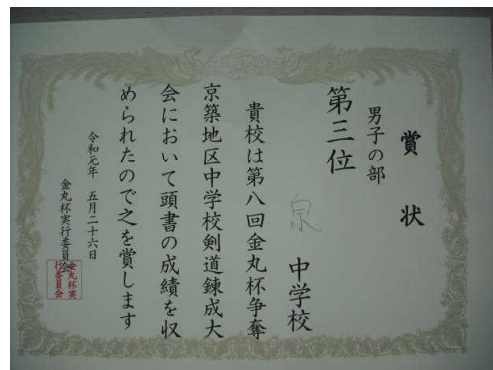 賞状
男子の部
第三位
泉 中学校
貴校は第八回金丸杯争奪
京築地区中学校剣道錬成大
会において頭書の成績を収
められたので之を賞します
令和元年 五月二十六日
金丸杯実行委員会
金丸杯実
行委員会